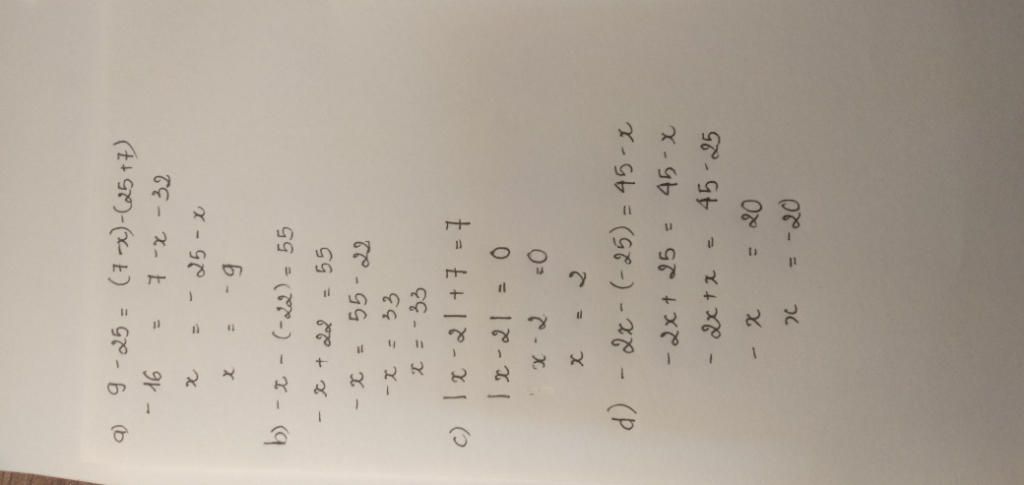 a) 9 - 25 = (7-x)-(25+7)
- 16 = 7 - x - 32
x = - 25 - x
x = - 9
b) - x - (-22) = 55
- x + 22 = 55
- x = 55 - 22
- x = 33
x = - 33
c) | x - 2 | + 7 = 7
| x - 2 | = 0
x - 2 = 0
x = 2
d) - 2x - (-25) = 45 - x
- 2x + 25 = 45 - x
- 2x + x = 45 - 25
- x = 20
x = - 20